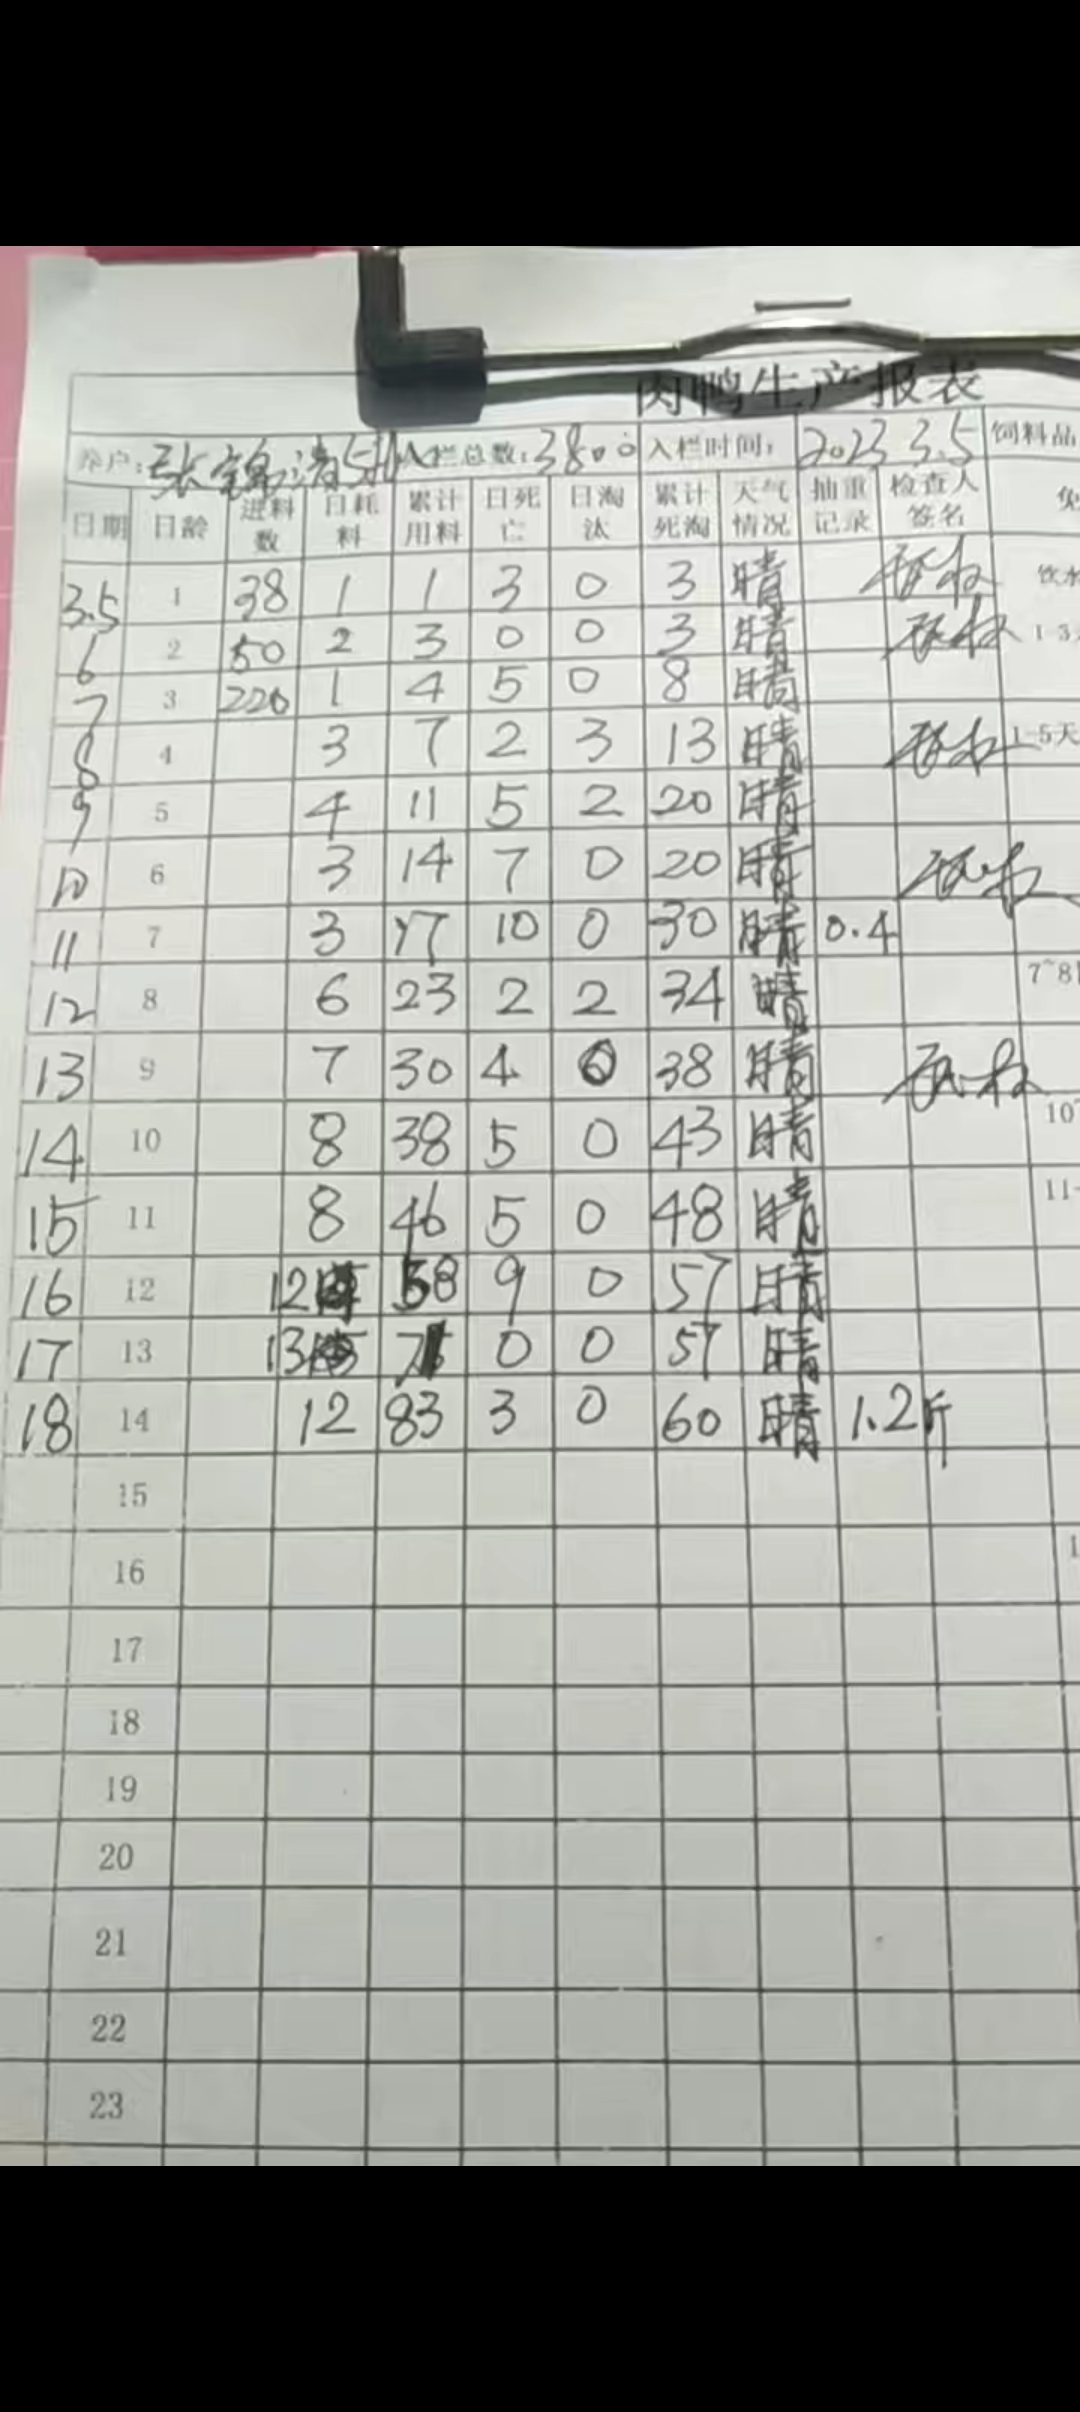 肉鸭生产报表
养户: 张锦清5批 入栏总数:3800 入栏时间: 2023 3.5 饲料品
日期 日龄 进料数 日耗料 累计用料 日死亡 日淘汰 累计死淘 天气情况 抽重记录 检查人签名 免
3.5 1 38 1 1 3 0 3 晴 饮水
6 2 50 2 3 0 0 3 晴 1-3
7 3 220 1 4 5 0 8 晴
8 4 3 7 2 3 13 晴 1-5天
9 5 4 11 5 2 20 晴
10 6 3 14 7 0 20 晴
11 7 3 17 10 0 30 晴 0.4
12 8 6 23 2 2 34 晴 7~8
13 9 7 30 4 0 38 晴
14 10 8 38 5 0 43 晴 10
15 11 8 46 5 0 48 晴 11-
16 12 12 58 9 0 57 晴
17 13 13 71 0 0 57 晴
18 14 12 83 3 0 60 晴 1.2斤
15
16 1
17
18
19
20
21
22
23